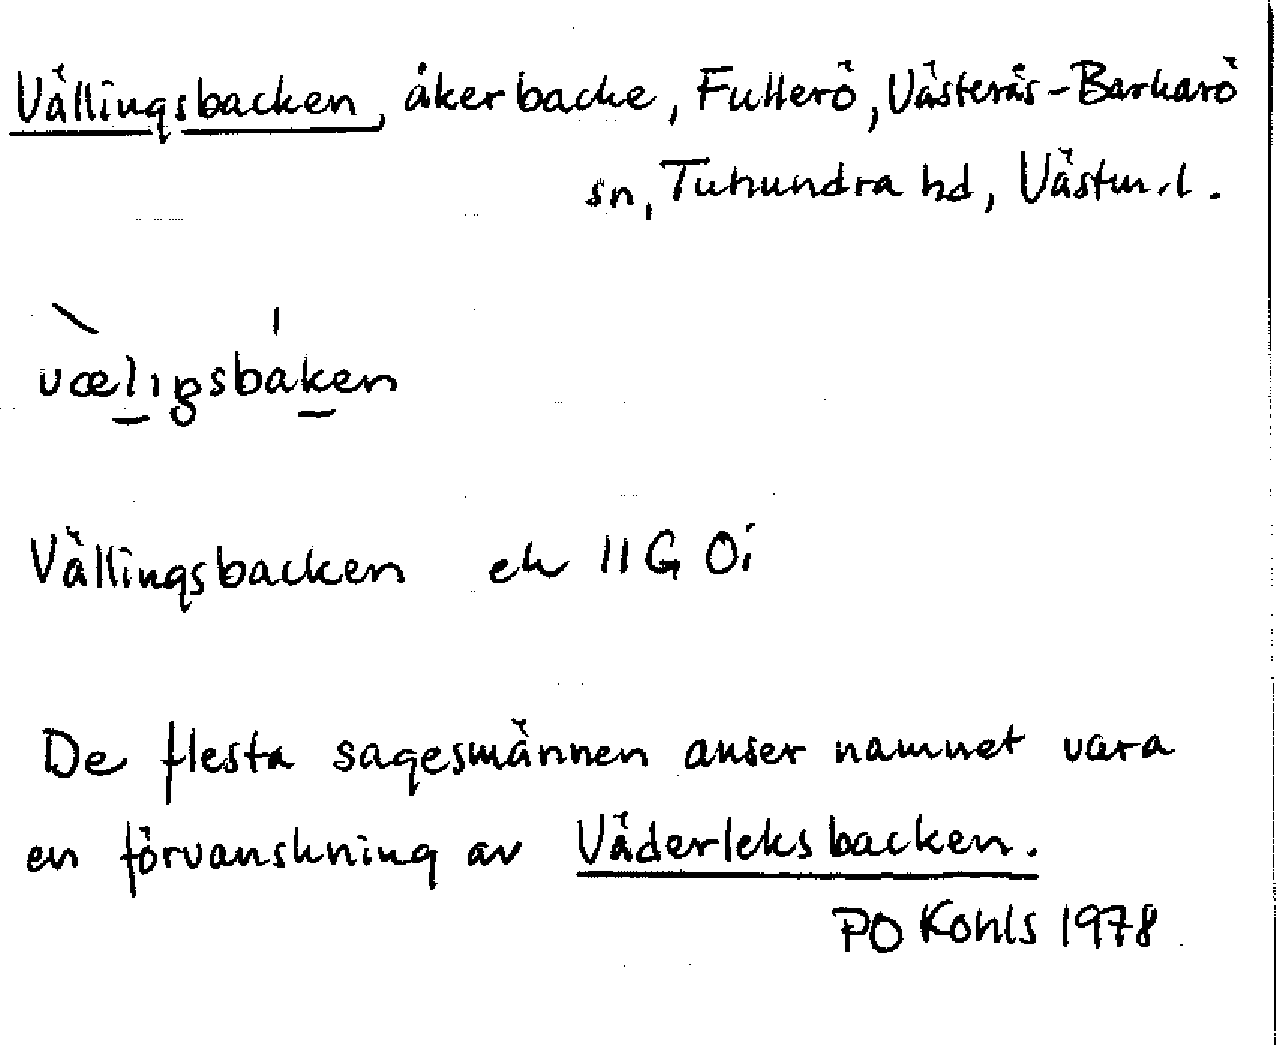 Vällingsbacken, åkerbacke, Fullerö, Västerås-Barkarö
sn, Tuhundra hd, Västm.l.
væliŋsbaken
Vällingsbacken ek 11G 0i
De flesta sagesmännen anser namnet vara
en förvanskning av Väderleksbacken.
PO Kohls 1978